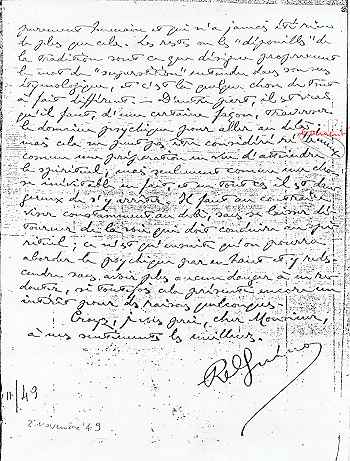 purement humaine et qui n'a jamais été rien
de plus que cela. Les restes ou les "dépouilles" de
la tradition sont ce que désigne proprement
le mot de "superstition" entendu dans son sens
étymologique, et c'est là quelque chose de tout
à fait différent. — D'autre part, il est vrai
qu'il faut, d'une certaine façon, traverser
le domaine psychique pour aller au delà,
mais cela ne peut pas être considéré
comme une préparation en vue d'atteindre
le spirituel, mais seulement comme une chose
inévitable en fait, et en tout cas il est dan-
gereux de s'y arrêter. Il faut au contraire
viser constamment au delà, sans se laisser dé-
tourner de la voie qui doit conduire au spi-
rituel; ce n'est qu'ensuite qu'on pourra
aborder le psychique par en haut et y redes-
cendre sans avoir plus aucun danger à en re-
douter, si toutefois cela présente encore un
intérêt pour des raisons quelconques.
Croyez, je vous prie, cher Monsieur,
à mes sentiments les meilleurs.
René Guénon
11/49
2 novembre 49